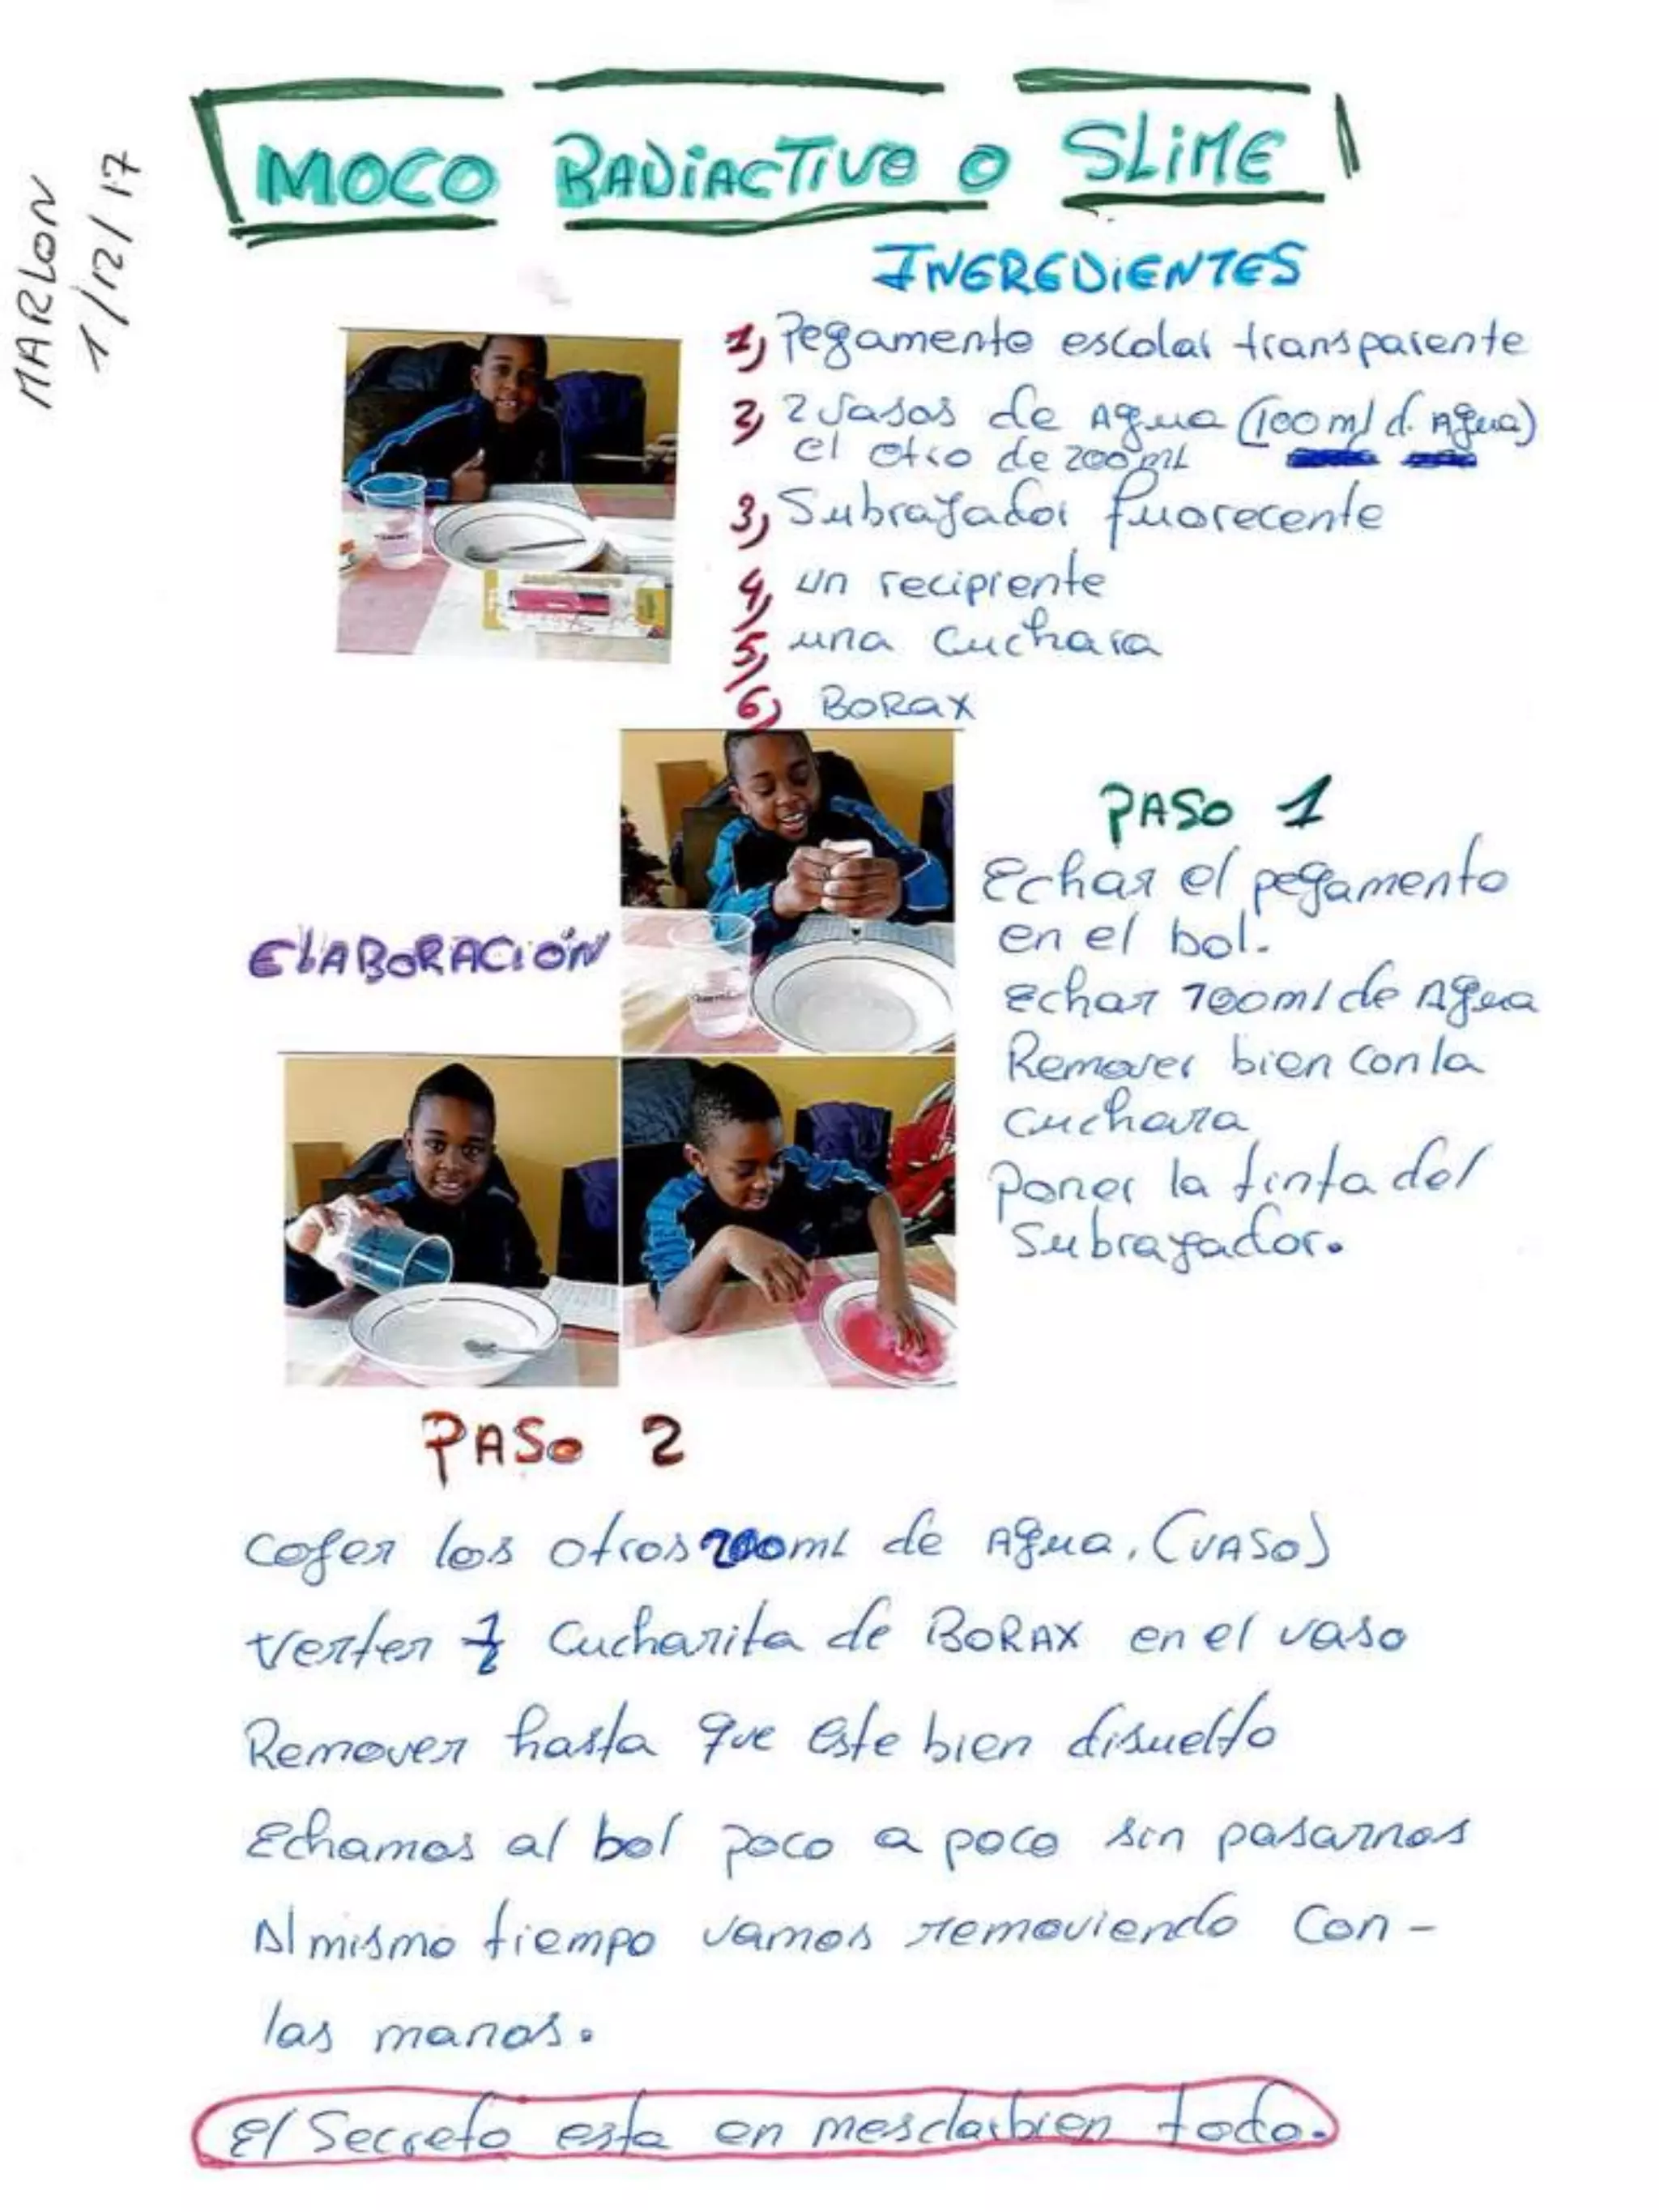 MARLON
1/12/17
MOCO RADIACTIVO O SLIME
INGREDIENTES
1) Pegamento escolar transparente
2) 2 vasos de Agua (100ml d. Agua)
el otro de 200ml
3) Subrayador fuorecente
4) un recipiente
5) una cuchara
6) BORAX
PASO 1
Echar el pegamento
en el bol.
ELABORACIÓN
Echar 100ml de Agua
Remover bien con la
cuchara
Poner la tinta del
Subrayador.
PASO 2
Coger los otros 200ml de Agua. (VASO)
Verter 1/2 Cucharita de BORAX en el vaso
Remover hasta que este bien disuelto
Echamos al bol poco a poco sin pasarnos
Al mismo tiempo vamos removiendo con -
las manos.
El Secreto esta en mesclar bien todo.